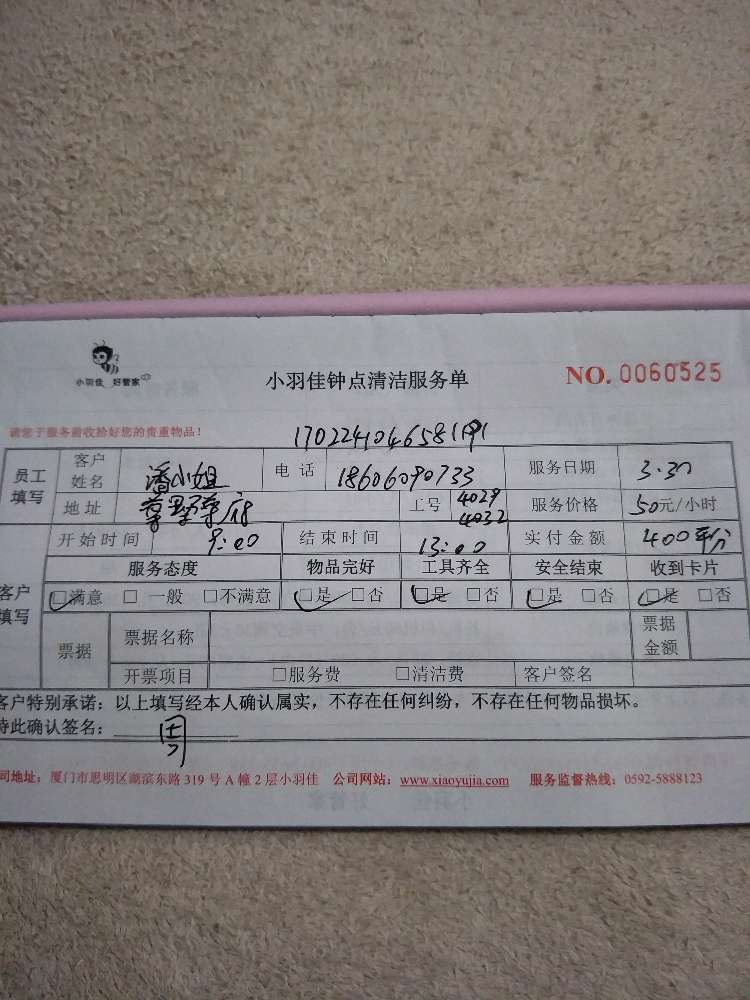 小羽佳 好管家
小羽佳钟点清洁服务单
NO. 0060525
请您于服务前收拾好您的贵重物品!
员工填写 客户姓名 潘小姐 电话 18606090733 服务日期 3.30
地址 工号 4029 4032 服务价格 50元/小时
开始时间 9:00 结束时间 13:00 实付金额 400
客户填写 服务态度 物品完好 工具齐全 安全结束 收到卡片
□满意 □一般 □不满意 □是 □否 □是 □否 □是 □否 □是 □否
票据 票据名称 票据金额
开票项目 □服务费 □清洁费 客户签名
客户特别承诺:以上填写经本人确认属实,不存在任何纠纷,不存在任何物品损坏。
特此确认签名:
司地址:厦门市思明区湖滨东路 319 号 A 幢 2 层小羽佳 公司网站:www.xiaoyujia.com 服务监督热线:0592-5888123